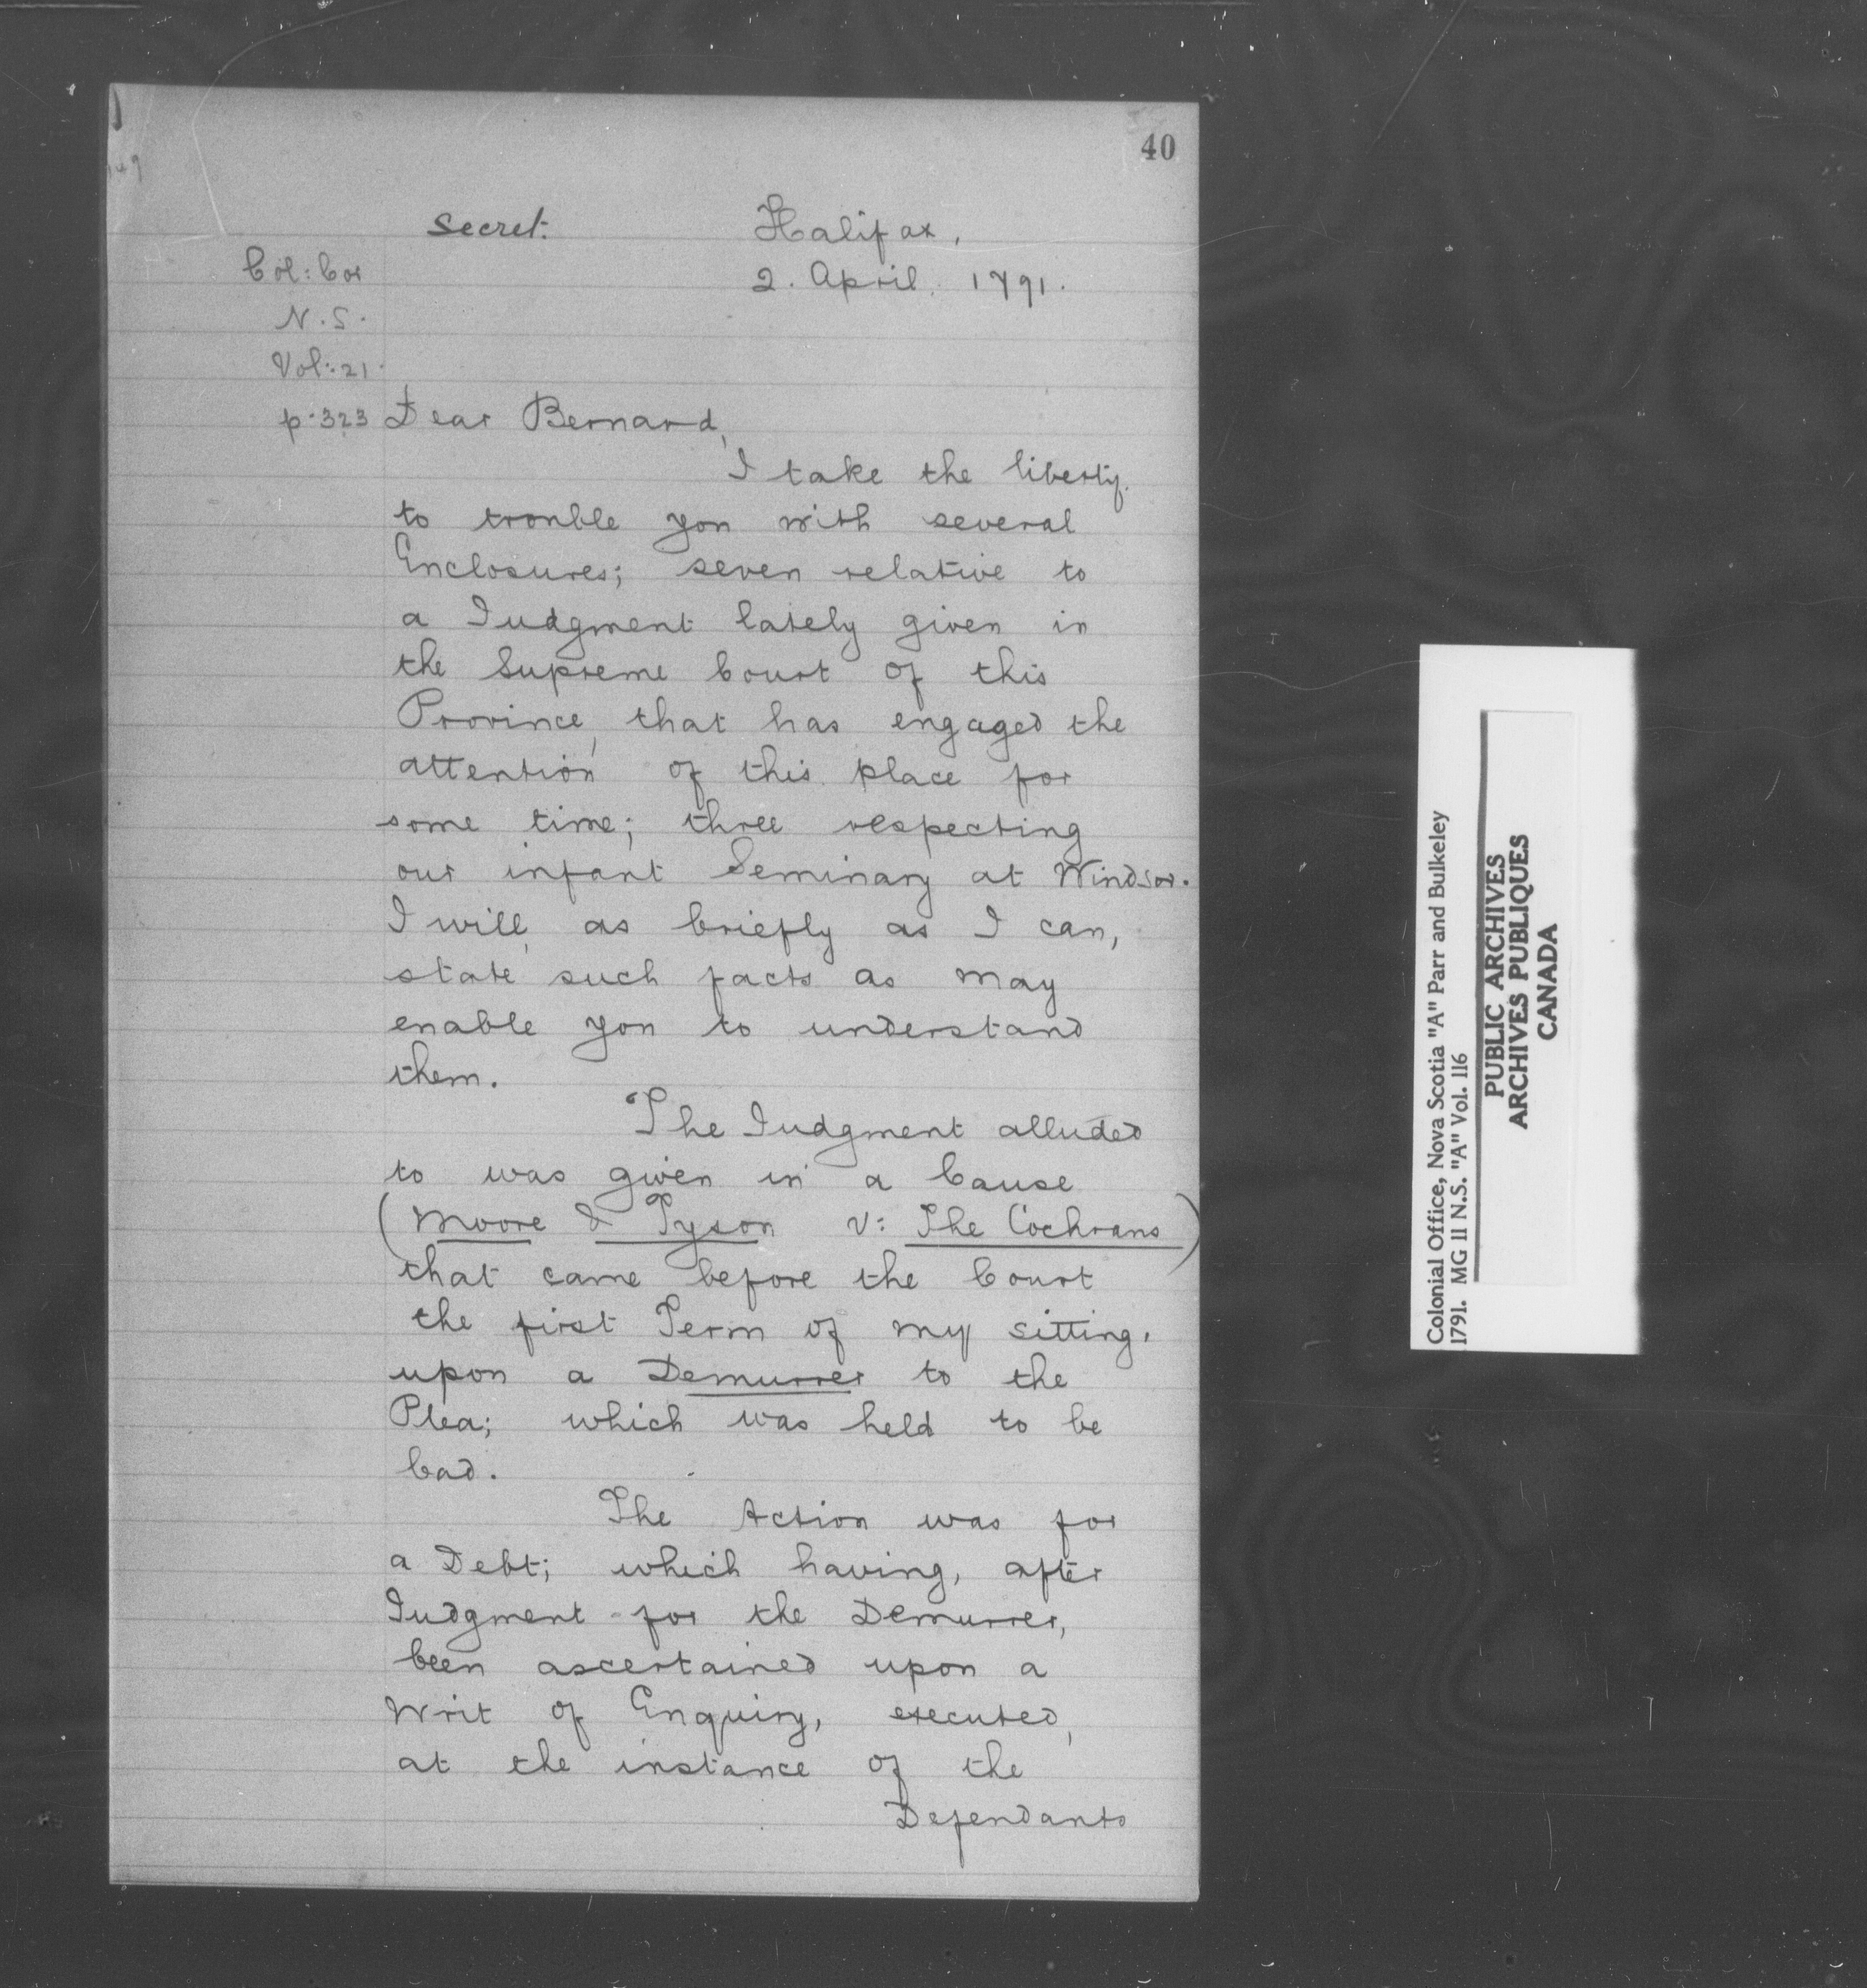 40
Secret.
Halifax,
2. April. 1791.
Col: Cor
N. S.
Vol: 21.
p. 323
Dear Bernard,
I take the liberty
to trouble you with several
Enclosures; seven relative to
a Judgment lately given in
the Supreme Court of this
Province, that has engaged the
attention of this place for
some time; three respecting
our infant Seminary at Windsor.
I will, as briefly as I can,
state such facts as may
enable you to understand
them.
The Judgment alluded
to was given in a Cause
(Moore & Tyson v: The Cochrans)
that came before the Court
the first Term of my sitting,
upon a Demurrer to the
Plea; which was held to be
bad.
The Action was for
a Debt; which having, after
Judgment for the Demurrer,
been ascertained upon a
Writ of Enquiry, executed,
at the instance of the
Defendants
Colonial Office, Nova Scotia "A" Parr and Bulkeley
1791. MG 11 N.S. "A" Vol. 116
PUBLIC ARCHIVES
ARCHIVES PUBLIQUES
CANADA